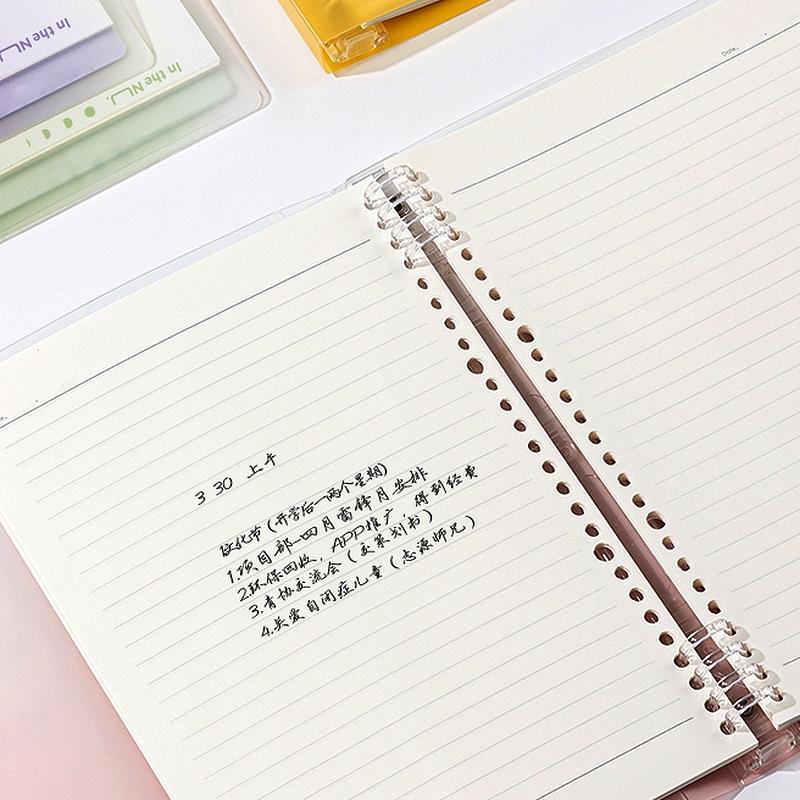 In the NU
In the NU
Date.
3 30 上午
文化节(开学后一两个星期)
1.项目部—四月雷锋月安排
2.环保回收,APP推广,得到经费
3.青协交流会(交策划书)
4.关爱自闭症儿童(志源师兄)